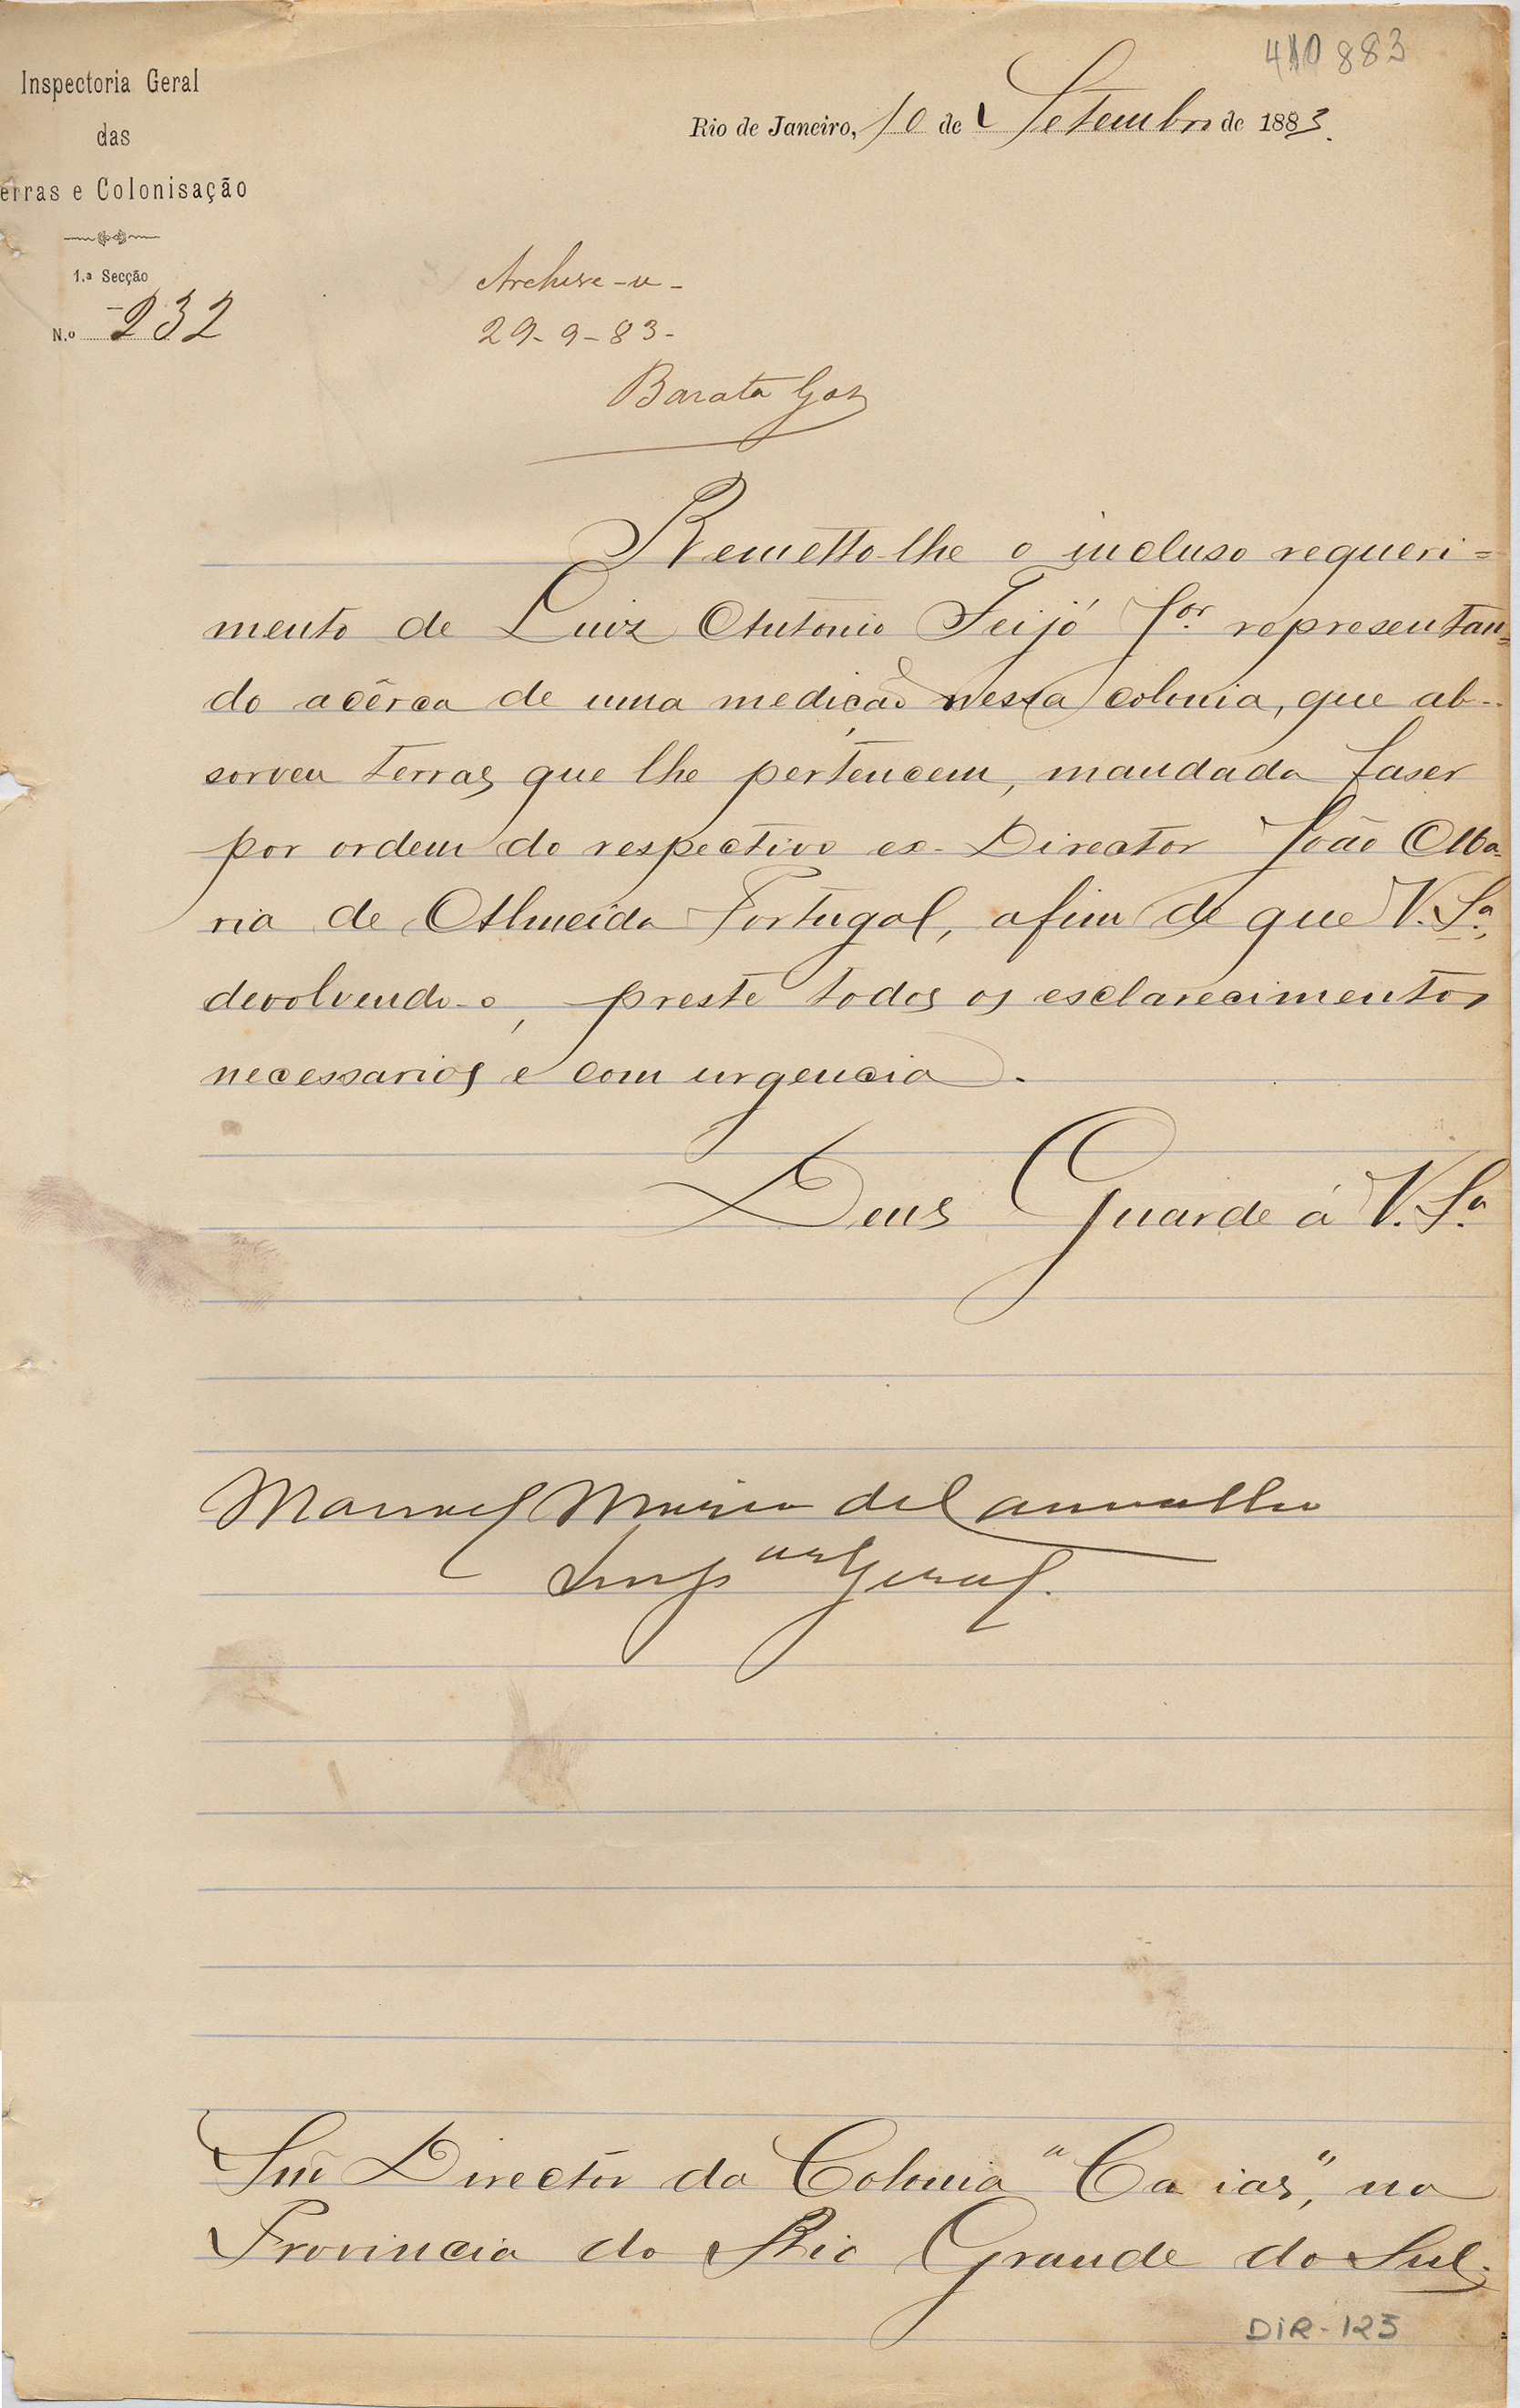 410 883
Inspectoria Geral
das
erras e Colonisação
1.ª Secção
N.º 232
Rio de Janeiro, 10 de Setembro de 1883.
Archive-se-
29-9-83-
Barata Goz
Remetto-lhe o incluso requeri=
mento de Luiz Antonio Feijó Jor. representan=
do acêrca de uma medição nessa colonia, que ab-
sorveu terras que lhe pertencem, mandada faser
por ordem do respectivo ex-Director João Ma-
ria de Almeida Portugal, afim de que V. Sª.,
devolvendo-o, preste todos os esclarecimentos
necessarios e com urgencia.
Deus Guarde á V. Sª.
Manoel Maria de Carvalho
Inspor Geral.
Snr Director da Colonia "Caxias", na
Provincia do Rio Grande do Sul.
DIR-125